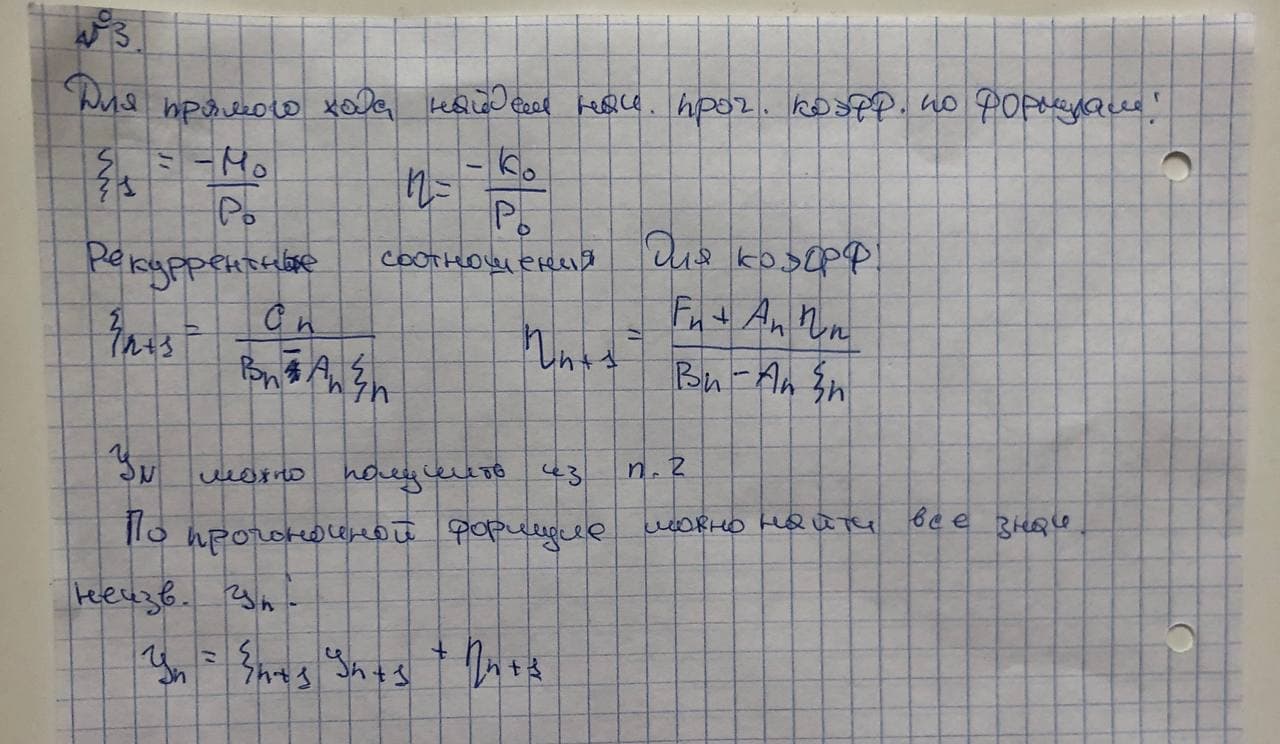 №3.
Для прямого хода найдем нач. прог. коэфф. по формулам:
ξ₁ = -M₀/P₀    η = -K₀/P₀
Рекуррентные соотношения для коэфф:
ξₙ₊₁ = Cₙ/(Bₙ - Aₙξₙ)    ηₙ₊₁ = (Fₙ + Aₙηₙ)/(Bₙ - Aₙξₙ)
y_N можно получить из п. 2
По прогоночной формуле можно найти все знач.
неизв. yₙ:
yₙ = ξₙ₊₁ yₙ₊₁ + ηₙ₊₁